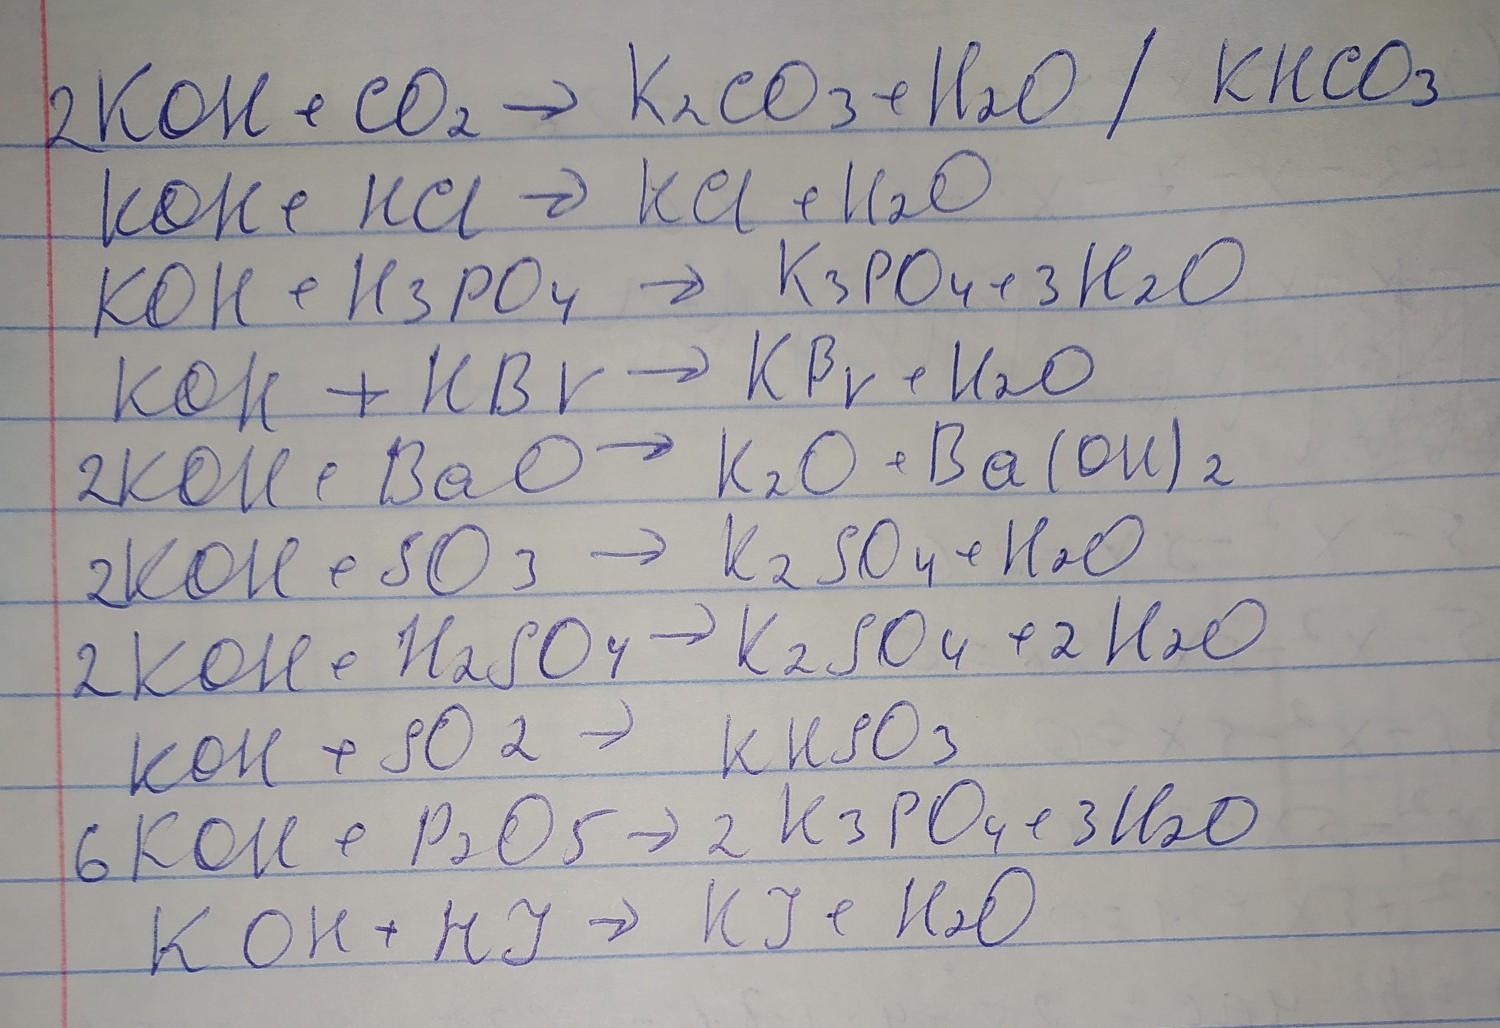 2KOH + CO2 → K2CO3 + H2O / KHCO3
KOH + HCl → KCl + H2O
KOH + H3PO4 → K3PO4 + 3H2O
KOH + HBr → KBr + H2O
2KOH + BaO → K2O + Ba(OH)2
2KOH + SO3 → K2SO4 + H2O
2KOH + H2SO4 → K2SO4 + 2H2O
KOH + SO2 → KHSO3
6KOH + P2O5 → 2K3PO4 + 3H2O
KOH + HJ → KJ + H2O